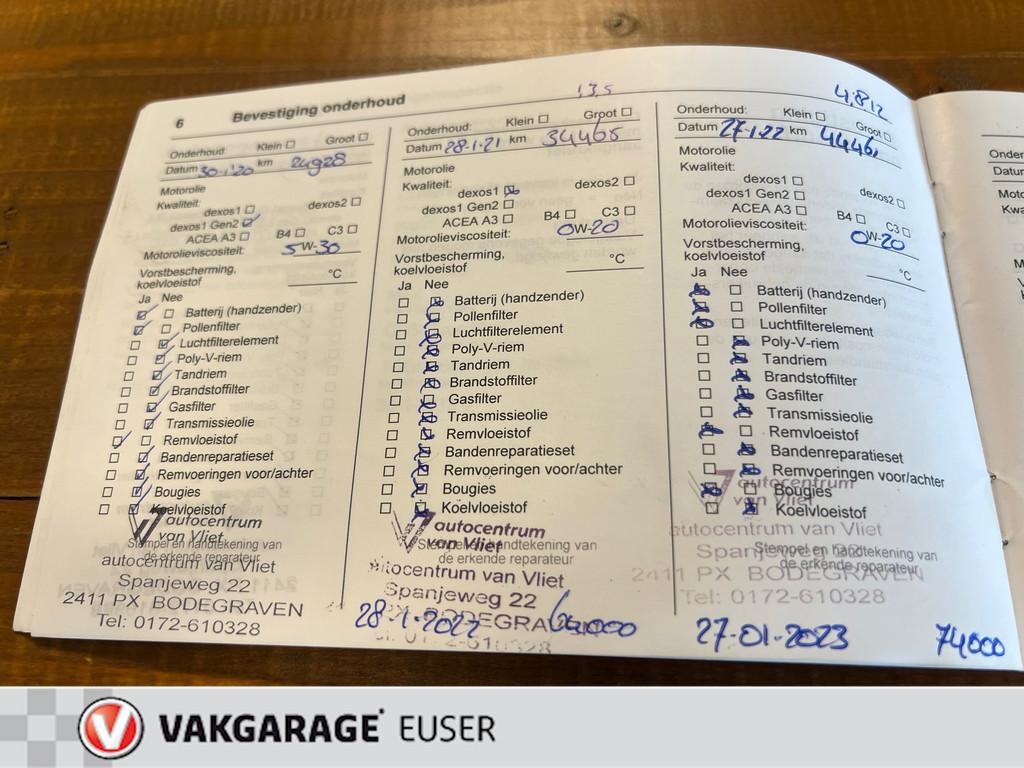 6 Bevestiging onderhoud
Onderhoud: Klein Groot
Datum 30-1-'20 km 24928
Motorolie
Kwaliteit:
dexos1 dexos2
dexos1 Gen2
ACEA A3 B4 C3
Motorolieviscositeit: 5W-30
Vorstbescherming,
koelvloeistof °C
Ja Nee
Batterij (handzender)
Pollenfilter
Luchtfilterelement
Poly-V-riem
Tandriem
Brandstoffilter
Gasfilter
Transmissieolie
Remvloeistof
Bandenreparatieset
Remvoeringen voor/achter
Bougies
Koelvloeistof
autocentrum
van Vliet
Stempel en handtekening van
de erkende reparateur
autocentrum van Vliet
Spanjeweg 22
2411 PX BODEGRAVEN
Tel: 0172-610328
13,5
Onderhoud: Klein Groot
Datum 28-1-21 km 34465
Motorolie
Kwaliteit:
dexos1 dexos2
dexos1 Gen2
ACEA A3 B4 C3
Motorolieviscositeit: 0W-20
Vorstbescherming,
koelvloeistof °C
Ja Nee
Batterij (handzender)
Pollenfilter
Luchtfilterelement
Poly-V-riem
Tandriem
Brandstoffilter
Gasfilter
Transmissieolie
Remvloeistof
Bandenreparatieset
Remvoeringen voor/achter
Bougies
Koelvloeistof
autocentrum
van Vliet
Stempel en handtekening van
de erkende reparateur
autocentrum van Vliet
Spanjeweg 22
28-1-2022
Onderhoud: Klein Groot
Datum 27-1-22 km
Motorolie
Kwaliteit:
dexos1 dexos2
dexos1 Gen2
ACEA A3 B4 C3
Motorolieviscositeit: 0W-20
Vorstbescherming,
koelvloeistof °C
Ja Nee
Batterij (handzender)
Pollenfilter
Luchtfilterelement
Poly-V-riem
Tandriem
Brandstoffilter
Gasfilter
Transmissieolie
Remvloeistof
Bandenreparatieset
Remvoeringen voor/achter
Bougies
Koelvloeistof
autocentrum
van Vliet
Stempel en handtekening van
de erkende reparateur
autocentrum van Vliet
2411 PX BODEGRAVEN
Tel: 0172-610328
27-01-2023 74000
VAKGARAGE EUSER